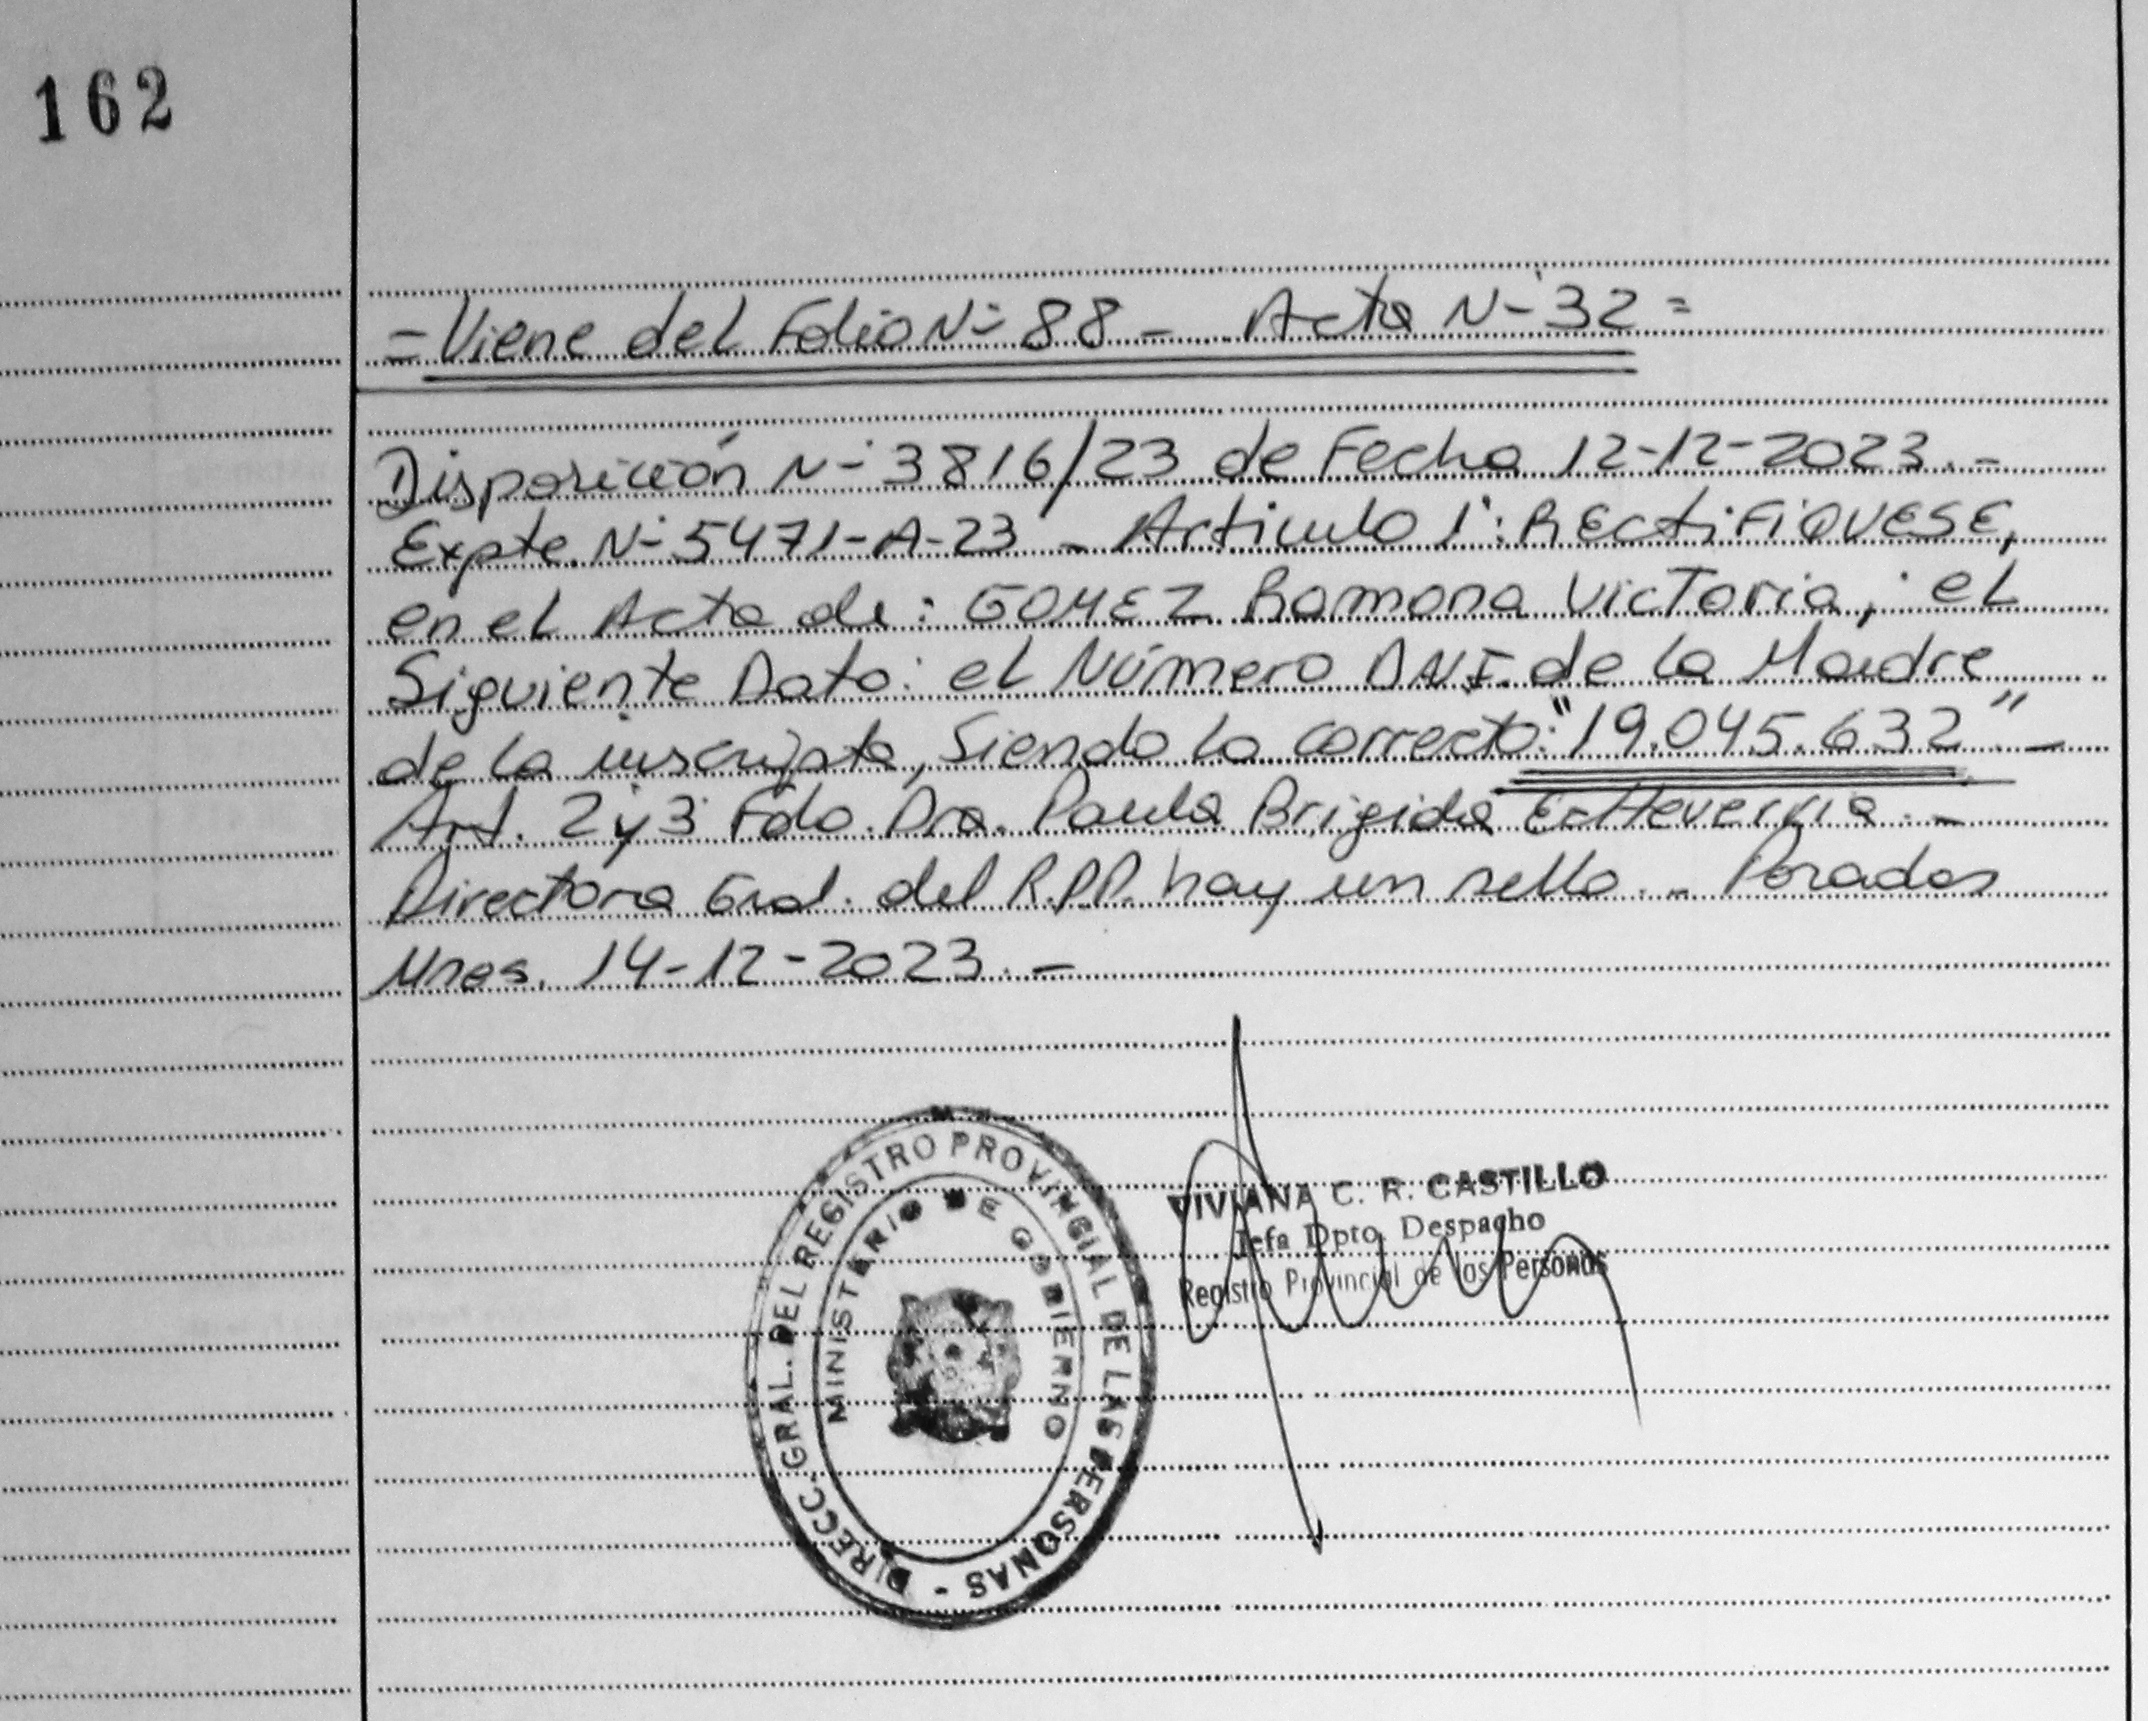 162
- Viene del Folio Nº 88 - Acta Nº 32 =
Disposición Nº 3816/23 de Fecha 12-12-2023.-
Expte. Nº 5471-A-23 - Articulo 1º: RECtiFiQUESE,
en el Acta de: GOMEZ Ramona Victoria, : el
Siguiente Dato: el Número DNI. de la Madre
de la inscripta, Siendo lo correcto: "19.045.632" -
Art. 2 y 3 Fdo. Dra. Paula Brigida EcHeverria. -
Directora Gral. del R.P.P. hay un sello. - Posadas
Mnes. 14-12-2023. -
DIRECC. GRAL. DEL REGISTRO PROVINCIAL DE LAS PERSONAS -
MINISTERIO DE GOBIERNO
VIVIANA C. R. CASTILLO
Jefa Dpto. Despacho
Registro Provincial de los Personas